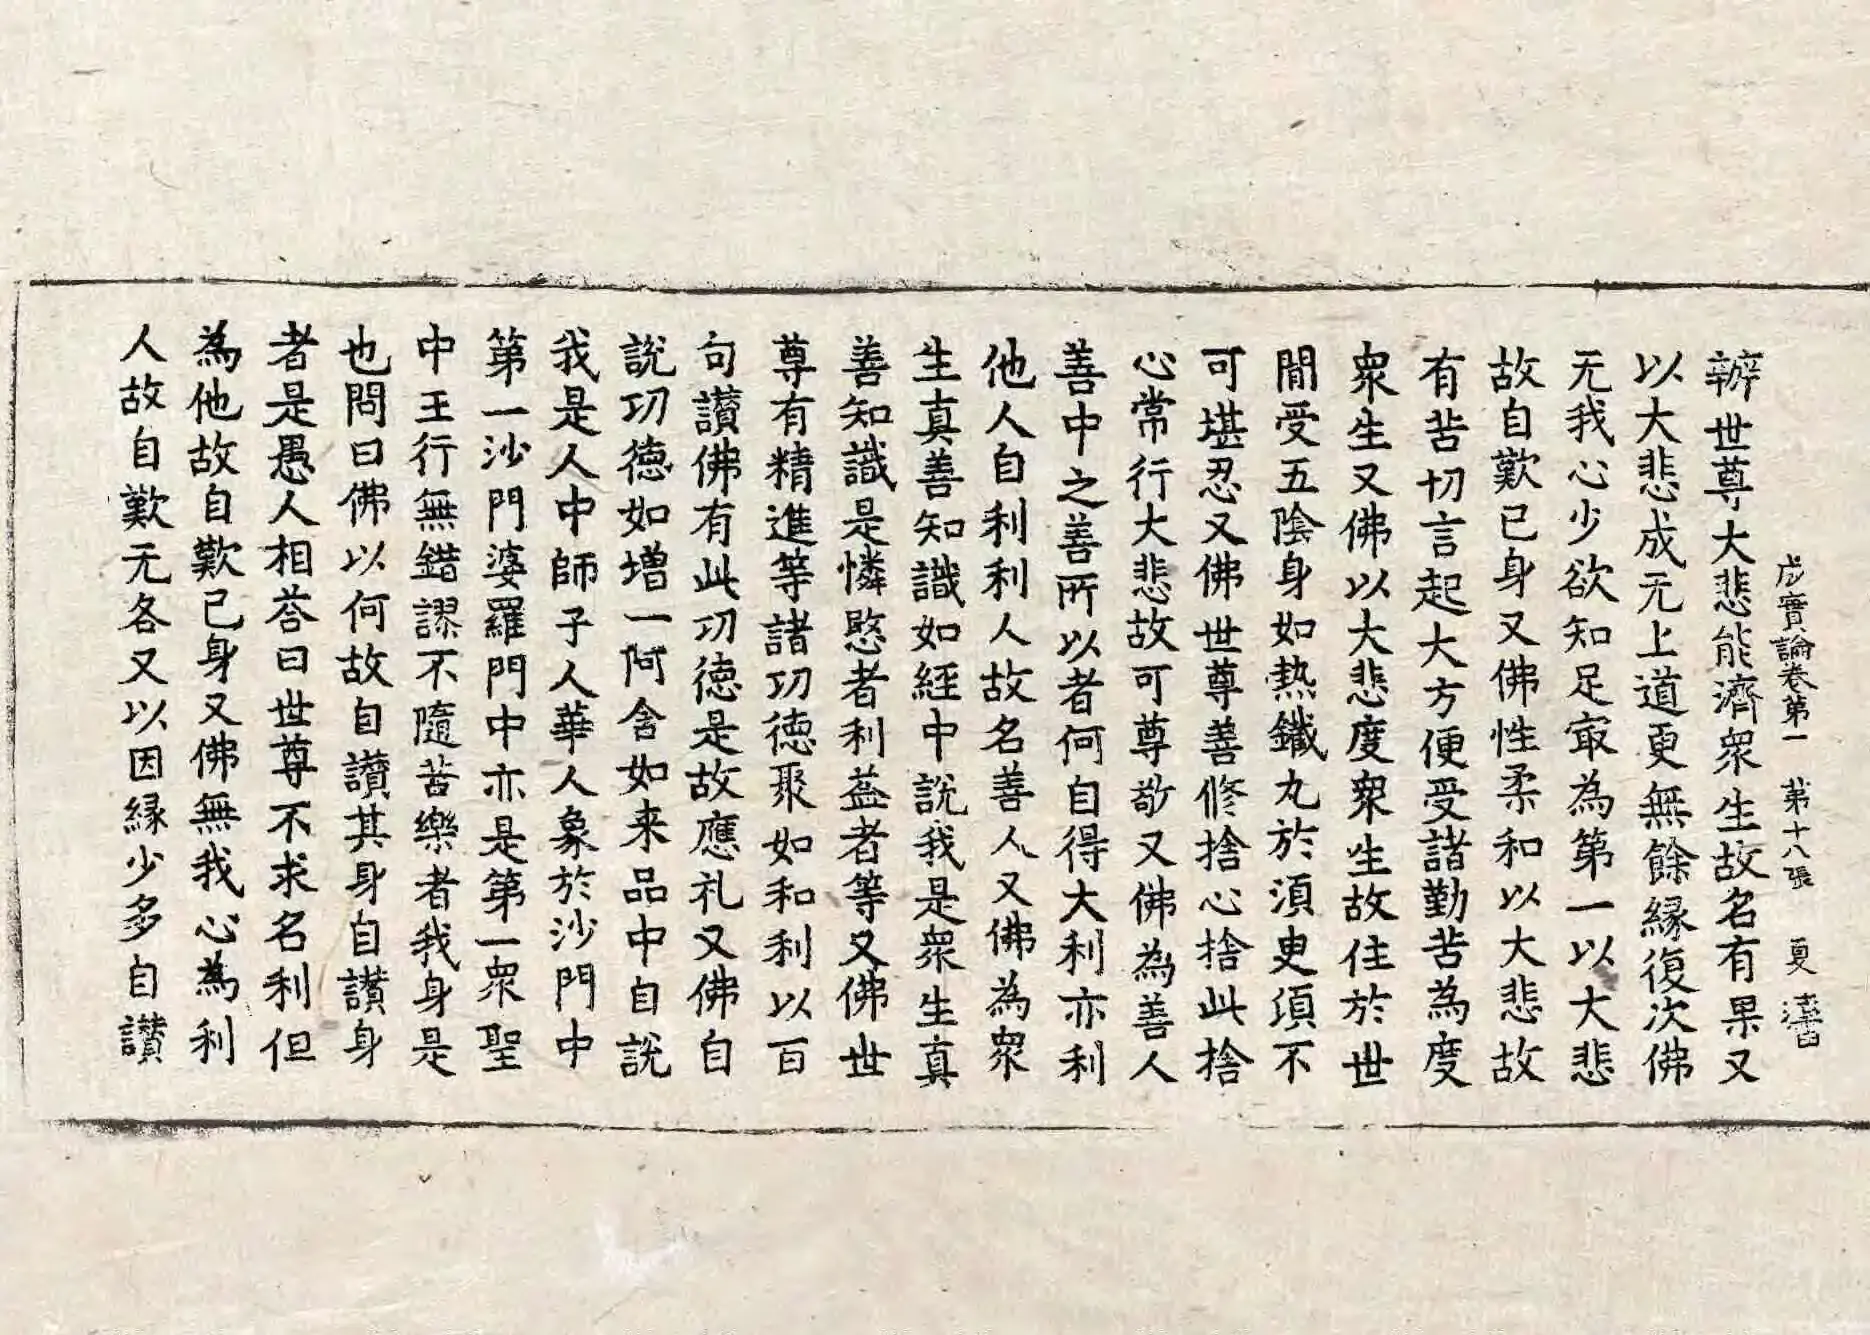 成實論卷第一 第十八張 夏
辦世尊大悲能濟衆生故名有果又
以大悲成无上道更無餘緣復次佛
无我心少欲知足㝡為第一以大悲
故自歎已身又佛性柔和以大悲故
有苦切言起大方便受諸勤苦為度
衆生又佛以大悲度衆生故住於世
間受五陰身如热鐵丸於須臾須不
可堪忍又佛世尊善修捨心捨此捨
心常行大悲故可尊敬又佛為善人
善中之善所以者何自得大利亦利
他人自利利人故名善人又佛為衆
生真善知識如經中說我是衆生真
善知識是憐愍者利益者等又佛世
尊有精進等諸功德聚如和利以百
句讃佛有此功德是故應礼又佛自
說功德如增一阿含如来品中自說
我是人中師子人華人象於沙門中
第一沙門婆羅門中亦是第一衆聖
中王行無錯謬不隨苦樂者我身是
也問曰佛以何故自讃其身自讃身
者是愚人相荅曰世尊不求名利但
為他故自歎已身又佛無我心為利
人故自歎无各又以因緣少多自讃